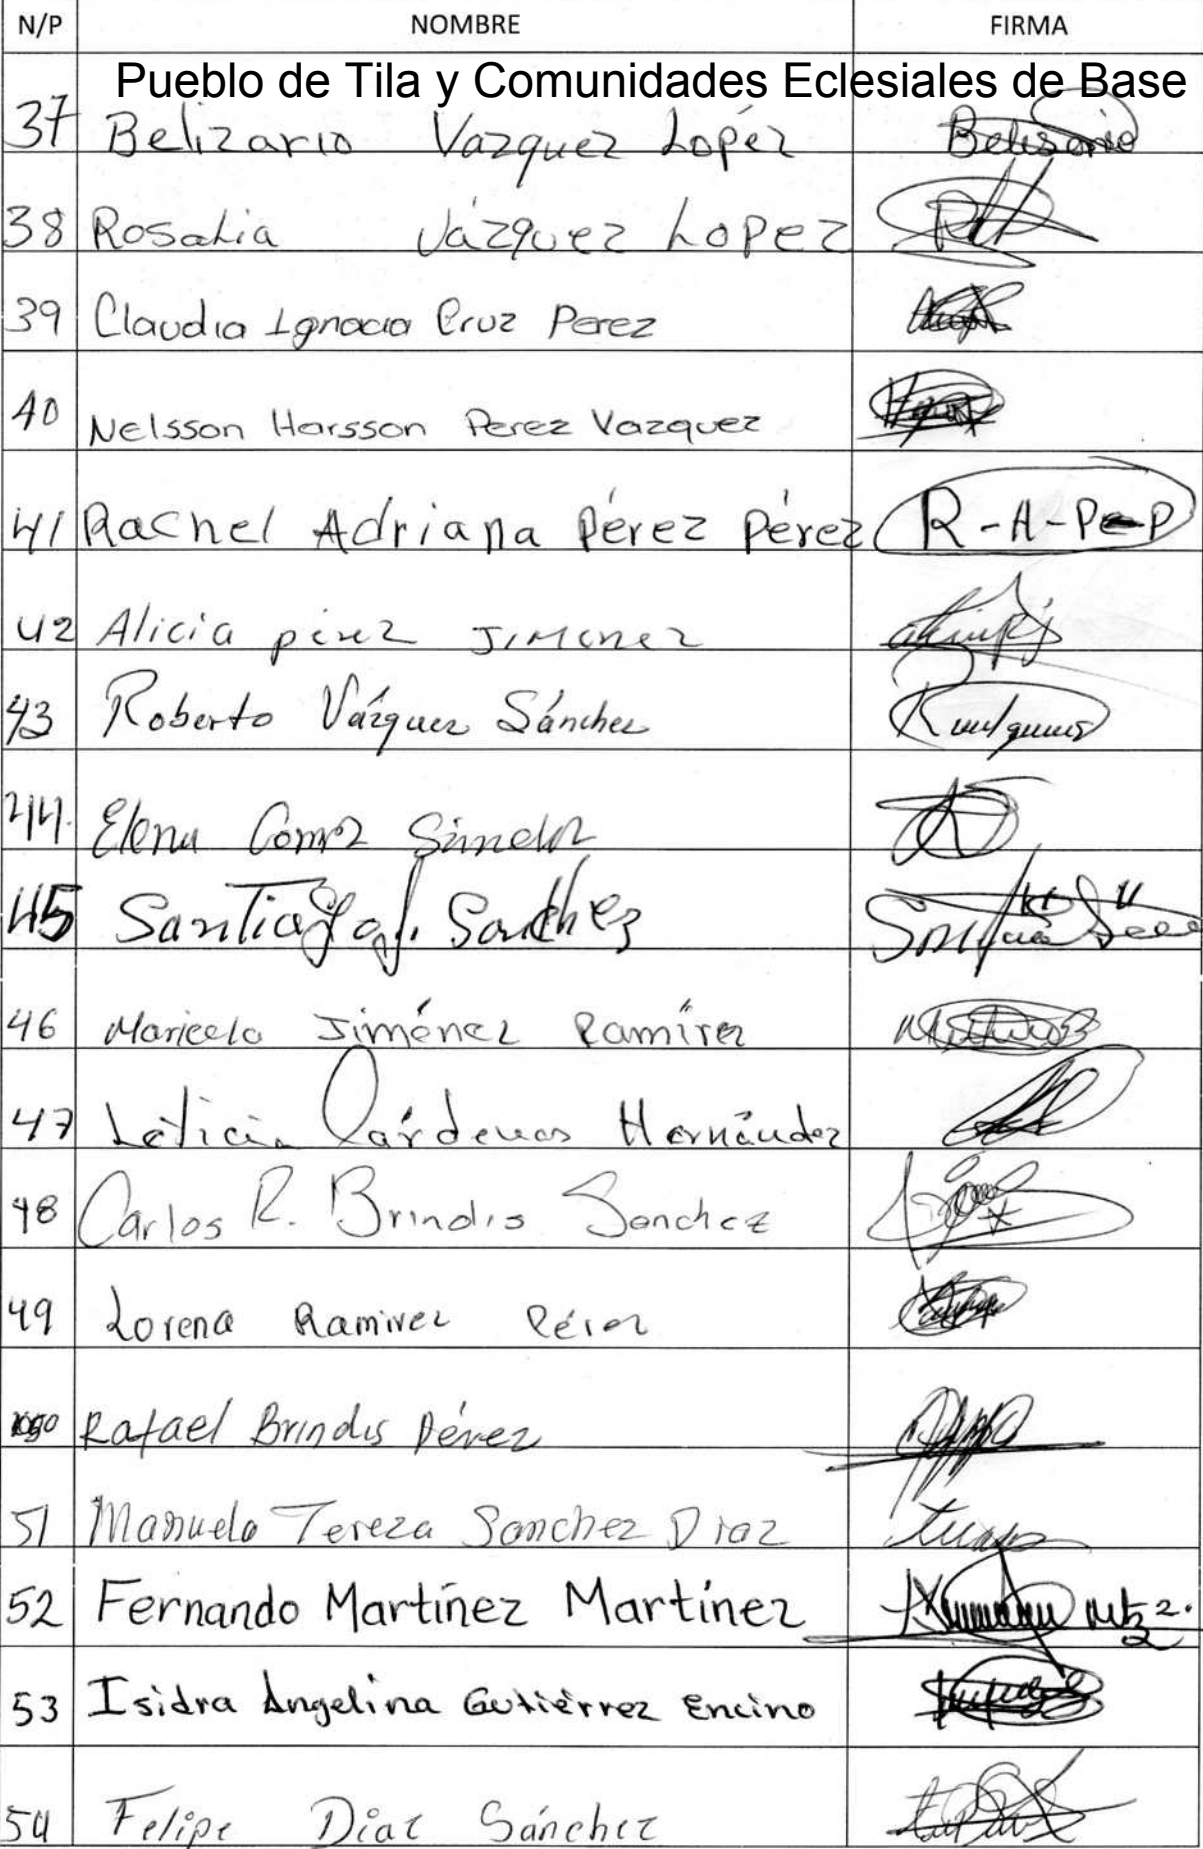 N/P NOMBRE FIRMA
Pueblo de Tila y Comunidades Eclesiales de Base
37 Belizario Vazquez Lopéz Belisario
38 Rosalia Vázquez Lopez
39 Claudia Ignacia Cruz Perez
40 Nelsson Harsson Perez Vazquez
41 Rachel Adriana Pérez Pérez R-A-P-P
42 Alicia pérez Jimenez
43 Roberto Vázquez Sánchez
44. Elena
45 Santiago J. Sanchez
46 Maricela Jiménez Ramírez
47 Leticia Cárdenas Hernández
48 Carlos R. Brindis Sanchez
49 Lorena Ramirez Pérez
50 Rafael Brindis Pérez
51 Manuela Tereza Sanchez Diaz
52 Fernando Martínez Martínez
53 Isidra Angelina Gutiérrez Encino
54 Felipe Díaz Sánchez